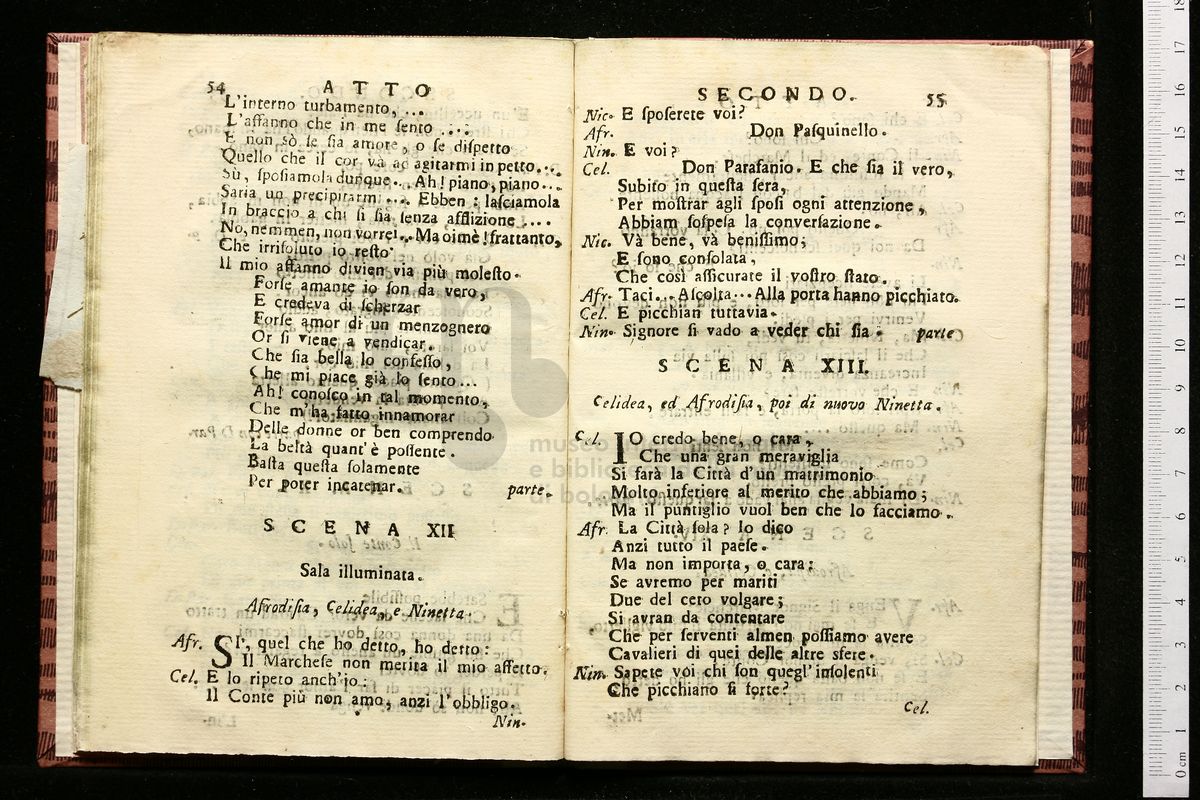 54 ATTO
L'interno turbamento, ...
L'affanno che in me sento ....
E non sò se sia amore, o se dispetto
Quello che il cor và ad agitarmi in petto...
Sù, sposiamola dunque... Ah! piano, piano...
Saria un precipitarmi .... Ebben: lasciamola
In braccio a chi si sia senza afflizione ....
No, nemmen, non vorrei... Ma oimè! frattanto,
Che irrisoluto io resto
Il mio affanno divien via più molesto.
Forse amante io son da vero,
E credeva di scherzar
Forse amor di un menzognero
Or si viene a vendicar.
Che sia bella lo confesso,
Che mi piace già lo sento...
Ah! conosco in tal momento,
Che m'ha fatto innamorar
Delle donne or ben comprendo
La beltà quant'è possente.
Basta questa solamente
Per poter incatenar. parte.
SCENA XII
Sala illuminata.
Afrodisia, Celidea, e Ninetta.
Afr. SI', quel che ho detto, ho detto:
Il Marchese non merita il mio affetto.
Cel. E lo ripeto anch'io:
Il Conte più non amo, anzi l'obbligo.
Nin.
SECONDO. 55
Nic. E sposerete voi?
Afr. Don Pasquinello.
Nin. E voi?
Cel. Don Parasanio. E che sia il vero,
Subito in questa sera,
Per mostrar agli sposi ogni attenzione,
Abbiam sospesa la conversazione.
Nic. Và bene, và benissimo;
E sono consolata,
Che così assicurate il vostro stato.
Afr. Taci... Ascolta... Alla porta hanno picchiato.
Cel. E picchian tuttavia.
Nin. Signore sì vado a veder chi sia. parte
SCENA XIII.
Celidea, ed Afrodisia, poi di nuovo Ninetta.
Cel. IO credo bene, o cara,
Che una gran meraviglia
Si farà la Città d'un matrimonio
Molto inferiore al merito che abbiamo;
Ma il puntiglio vuol ben che lo facciamo.
Afr. La Città sola? Io dico
Anzi tutto il paese.
Ma non importa, o cara:
Se avremo per mariti
Due del ceto volgare;
Si avran da contentare
Che per serventi almen possiamo avere
Cavalieri di quei delle altre sfere.
Nin. Sapete voi chi son quegl'insolenti
Che picchiano sì forte?
Cel.
museo
e biblio
di bolo
0 cm 1 2 3 4 5 6 7 8 9 10 11 12 13 14 15 16 17 18